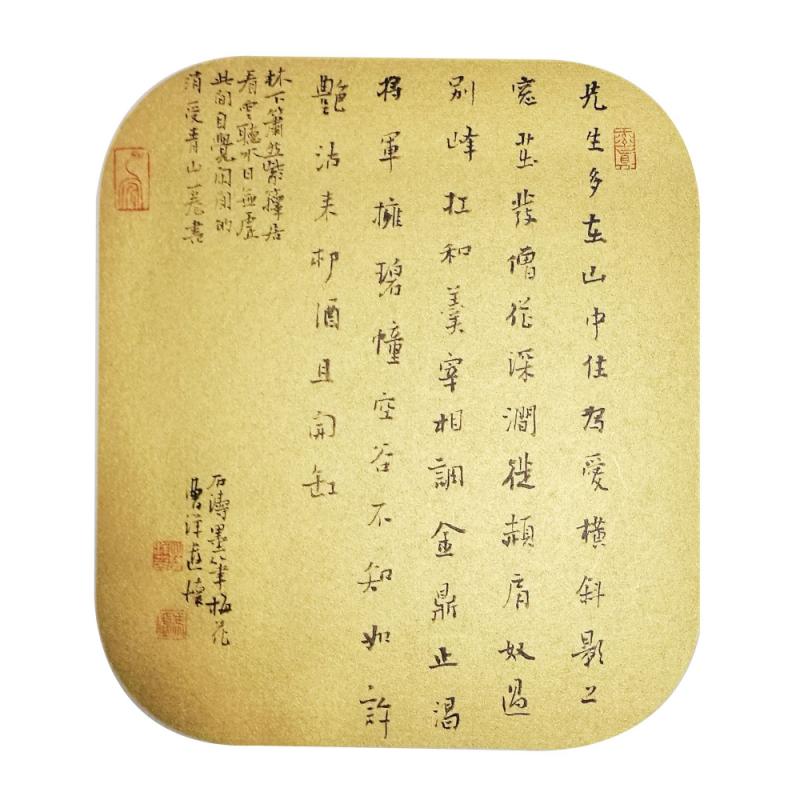 先生多在山中住为愛横斜影上
窓茁發僧從深澗徙頳肩奴過
別峰扛和羹宰相調金鼎止渴
将軍擁碧幢空谷不知如許
艷沽来邨酒且開缸
林下蕭然紫籜居
看雲聽水日無虛
此间自覺闲闲的
消受青山一卷書
石濤墨筆梅花
曹洋遣懷